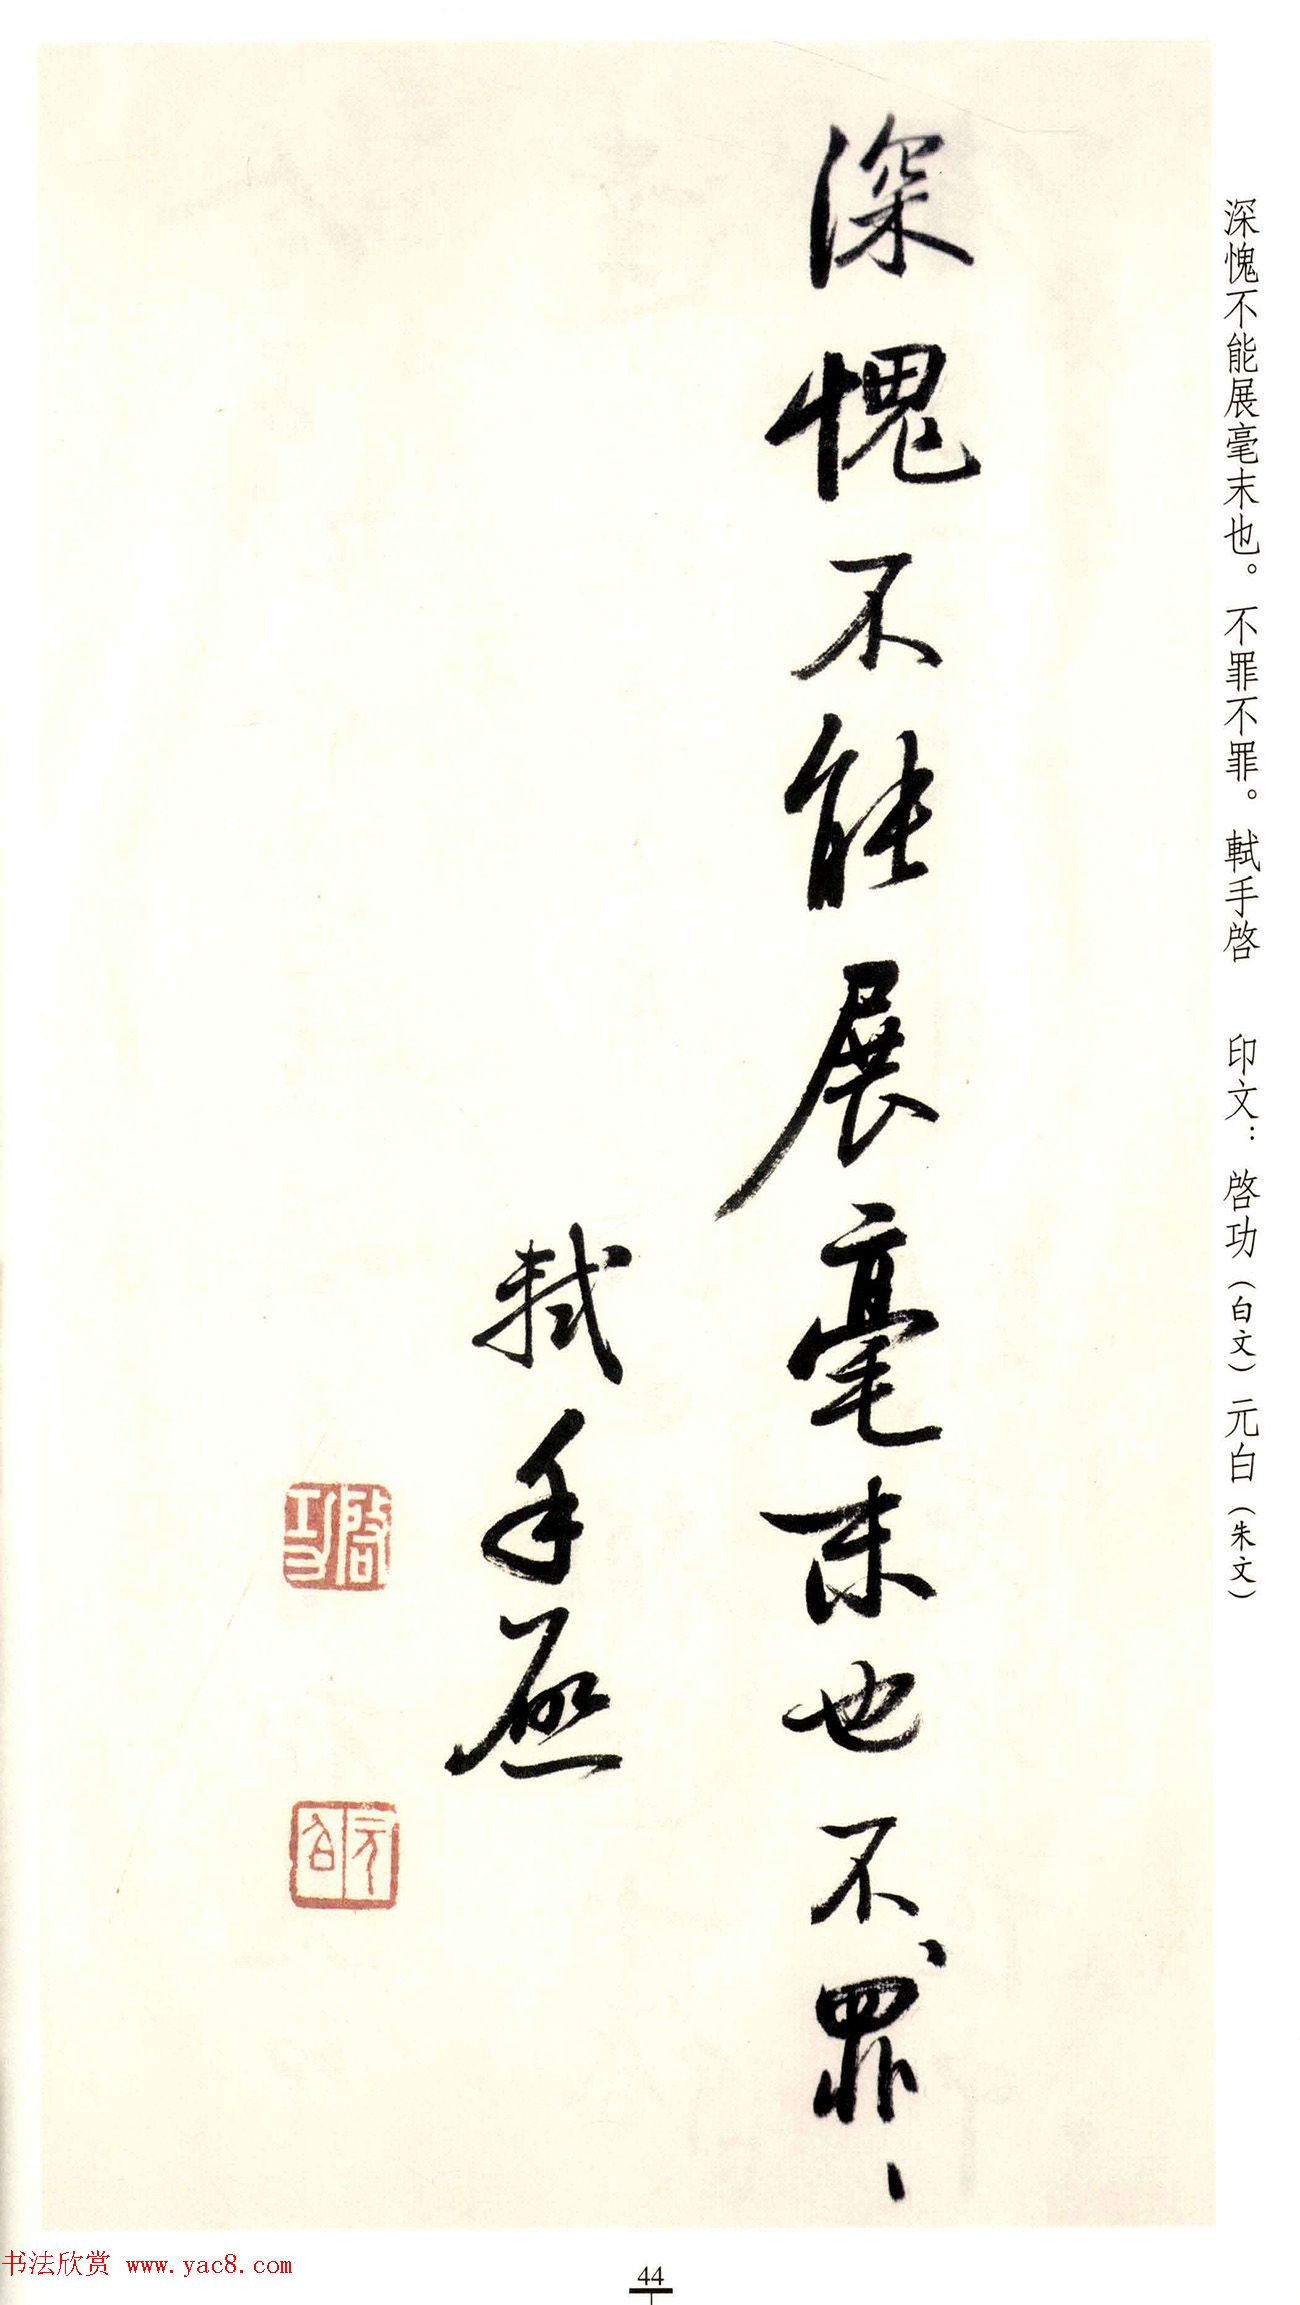 深愧不能展毫末也。不罪不罪。軾手啓　印文：啓功（白文）元白（朱文）
深愧不能展毫末也不、罪、
軾手啟
啓功
元白
书法欣赏 www.yac8.com
44